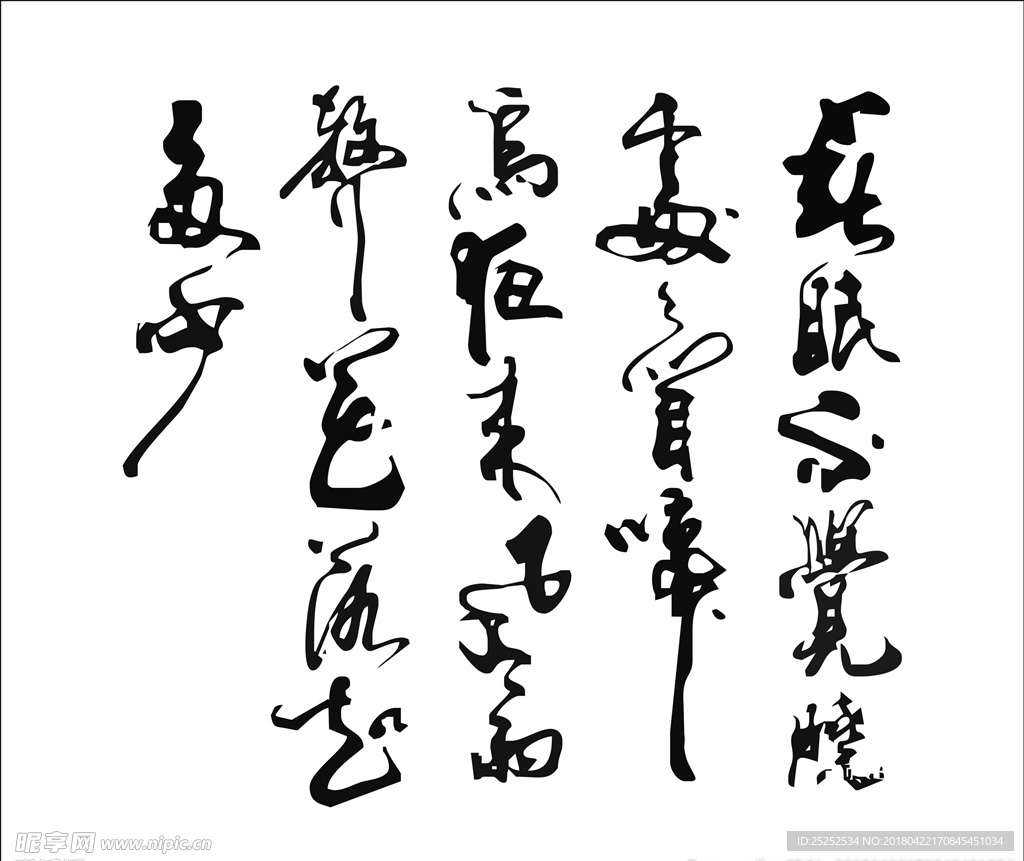 春眠不覺曉
處々聞啼
鳥夜來風雨
聲花落知
多少
昵享网 www.nipic.cn
ID:25252534 NO:20180422170845451034